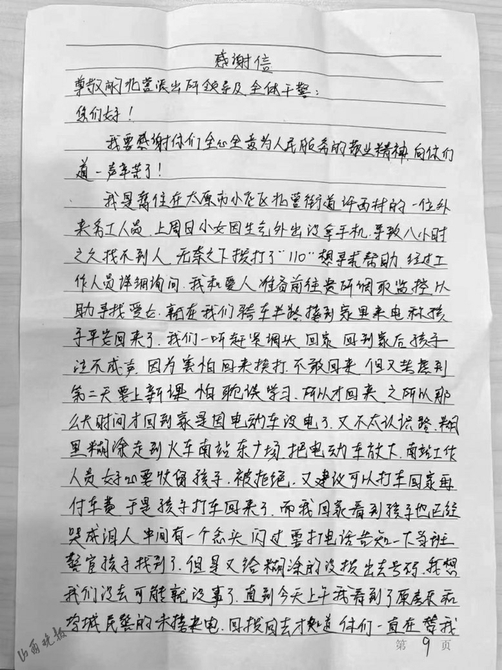 感谢信
尊敬的北营派出所领导及全体干警：
你们好！
我要感谢你们全心全意为人民服务的敬业精神，向你们
道一声辛苦了！
我是暂住在太原市小店区北营街道许西村的一位外
来务工人员，上周日小女因生气外出没拿手机，导致八小时
之久找不到人，无奈之下拨打了“110”想寻求帮助，经过工
作人员详细询问，我和爱人准备前往贵所调取监控以
助寻找爱女，就在我们骑车半路接到家里来电称孩
子平安回来了。我们一听赶紧调头回家，回到家后孩子
泣不成声，因为害怕回来挨打不敢回来，但又考虑到
第二天要上新课，怕耽误学习，所以才回来，之所以那
么长时间才回到家是因电动车没电了，又不太认识路，糊
里糊涂走到火车南站东广场，把电动车放下，南站工作
人员好心要收留孩子，被拒绝，又建议可以打车回家再
付车费，于是孩子打车回来了。而我回家看到孩子也已经
哭成泪人，中间有一个念头闪过要打电话告知一下当班
警官孩子找到了，但是又给糊涂的没拨出去号码，我想
我们没去可能就没事了，直到今天上午我看到了原来和
跨城民警的未接来电，回拨回去才知道你们一直在替我
第9页
山西晚报